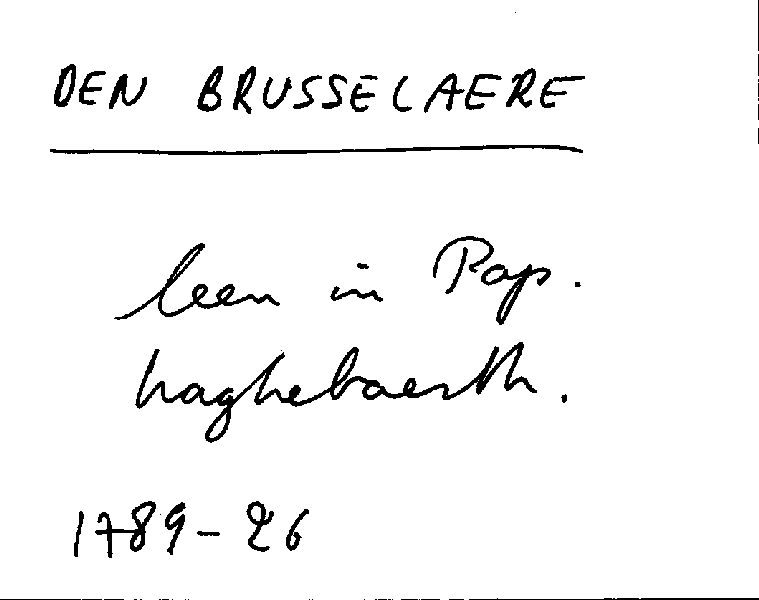 DEN BRUSSELAERE
leen in Pap.
haghebaerth.
1789-26